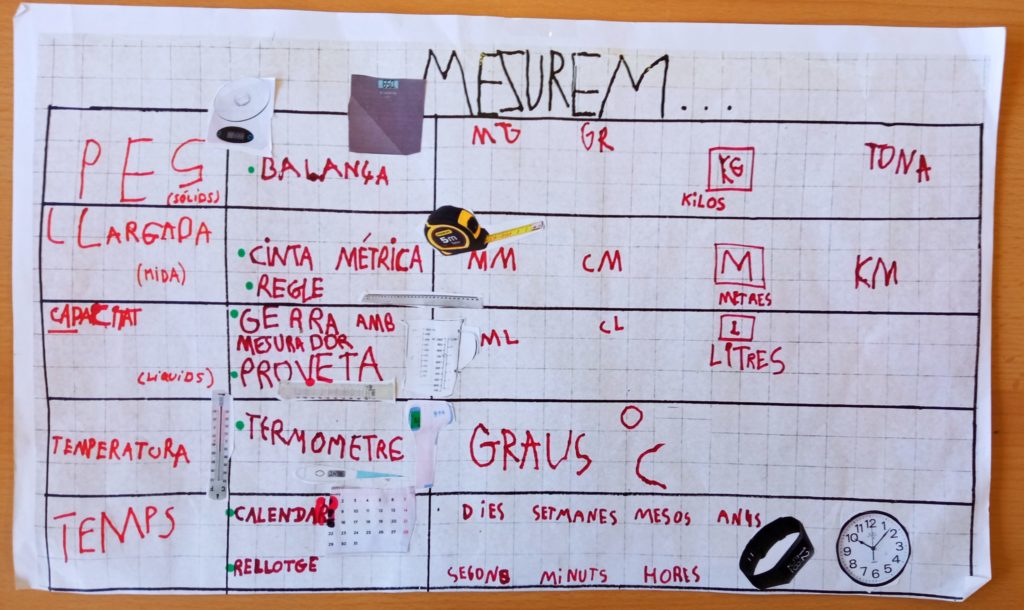 MESUREM...
PES
(SÒLIDS)
BALANÇA
MG
GR
KG
KILOS
TONA
LLARGADA
(MIDA)
CINTA MÉTRICA
REGLE
5m
MM
CM
M
METRES
KM
CAPACITAT
(LÍQUIDS)
GERRA AMB
MESURADOR
PROVETA
ML
CL
L
LITRES
TEMPERATURA
TERMOMETRE
GRAUS
°C
TEMPS
CALENDARI
RELLOTGE
DIES SETMANES MESOS ANYS
SEGONS MINUTS HORES